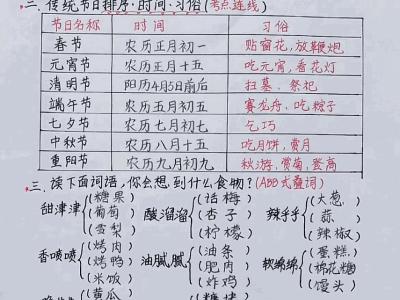 二、传统节日排序·时间·习俗(考点连线)
节日名称 时间 习俗
春节 农历正月初一 贴窗花,放鞭炮
元宵节 农历正月十五 吃元宵,看花灯
清明节 阳历4月5日前后 扫墓、祭祀
端午节 农历五月初五 赛龙舟、吃粽子
七夕节 农历七月初七 乞巧
中秋节 农历八月十五 吃月饼,赏月
重阳节 农历九月初九 秋游,赏菊,登高
三、读下面词语,你会想到什么食物?(ABB式叠词)
甜津津 (糖果) (葡萄) (雪梨) 酸溜溜 (话梅) (杏子) (柠檬) 辣乎乎 (大葱) (蒜) (辣椒)
香喷喷 (烤肉) (烤鸭) (米饭) 油腻腻 (油条) (肥肉) (炸鸡) 软绵绵 (蛋糕) (棉花糖) (馒头)
(黄瓜)